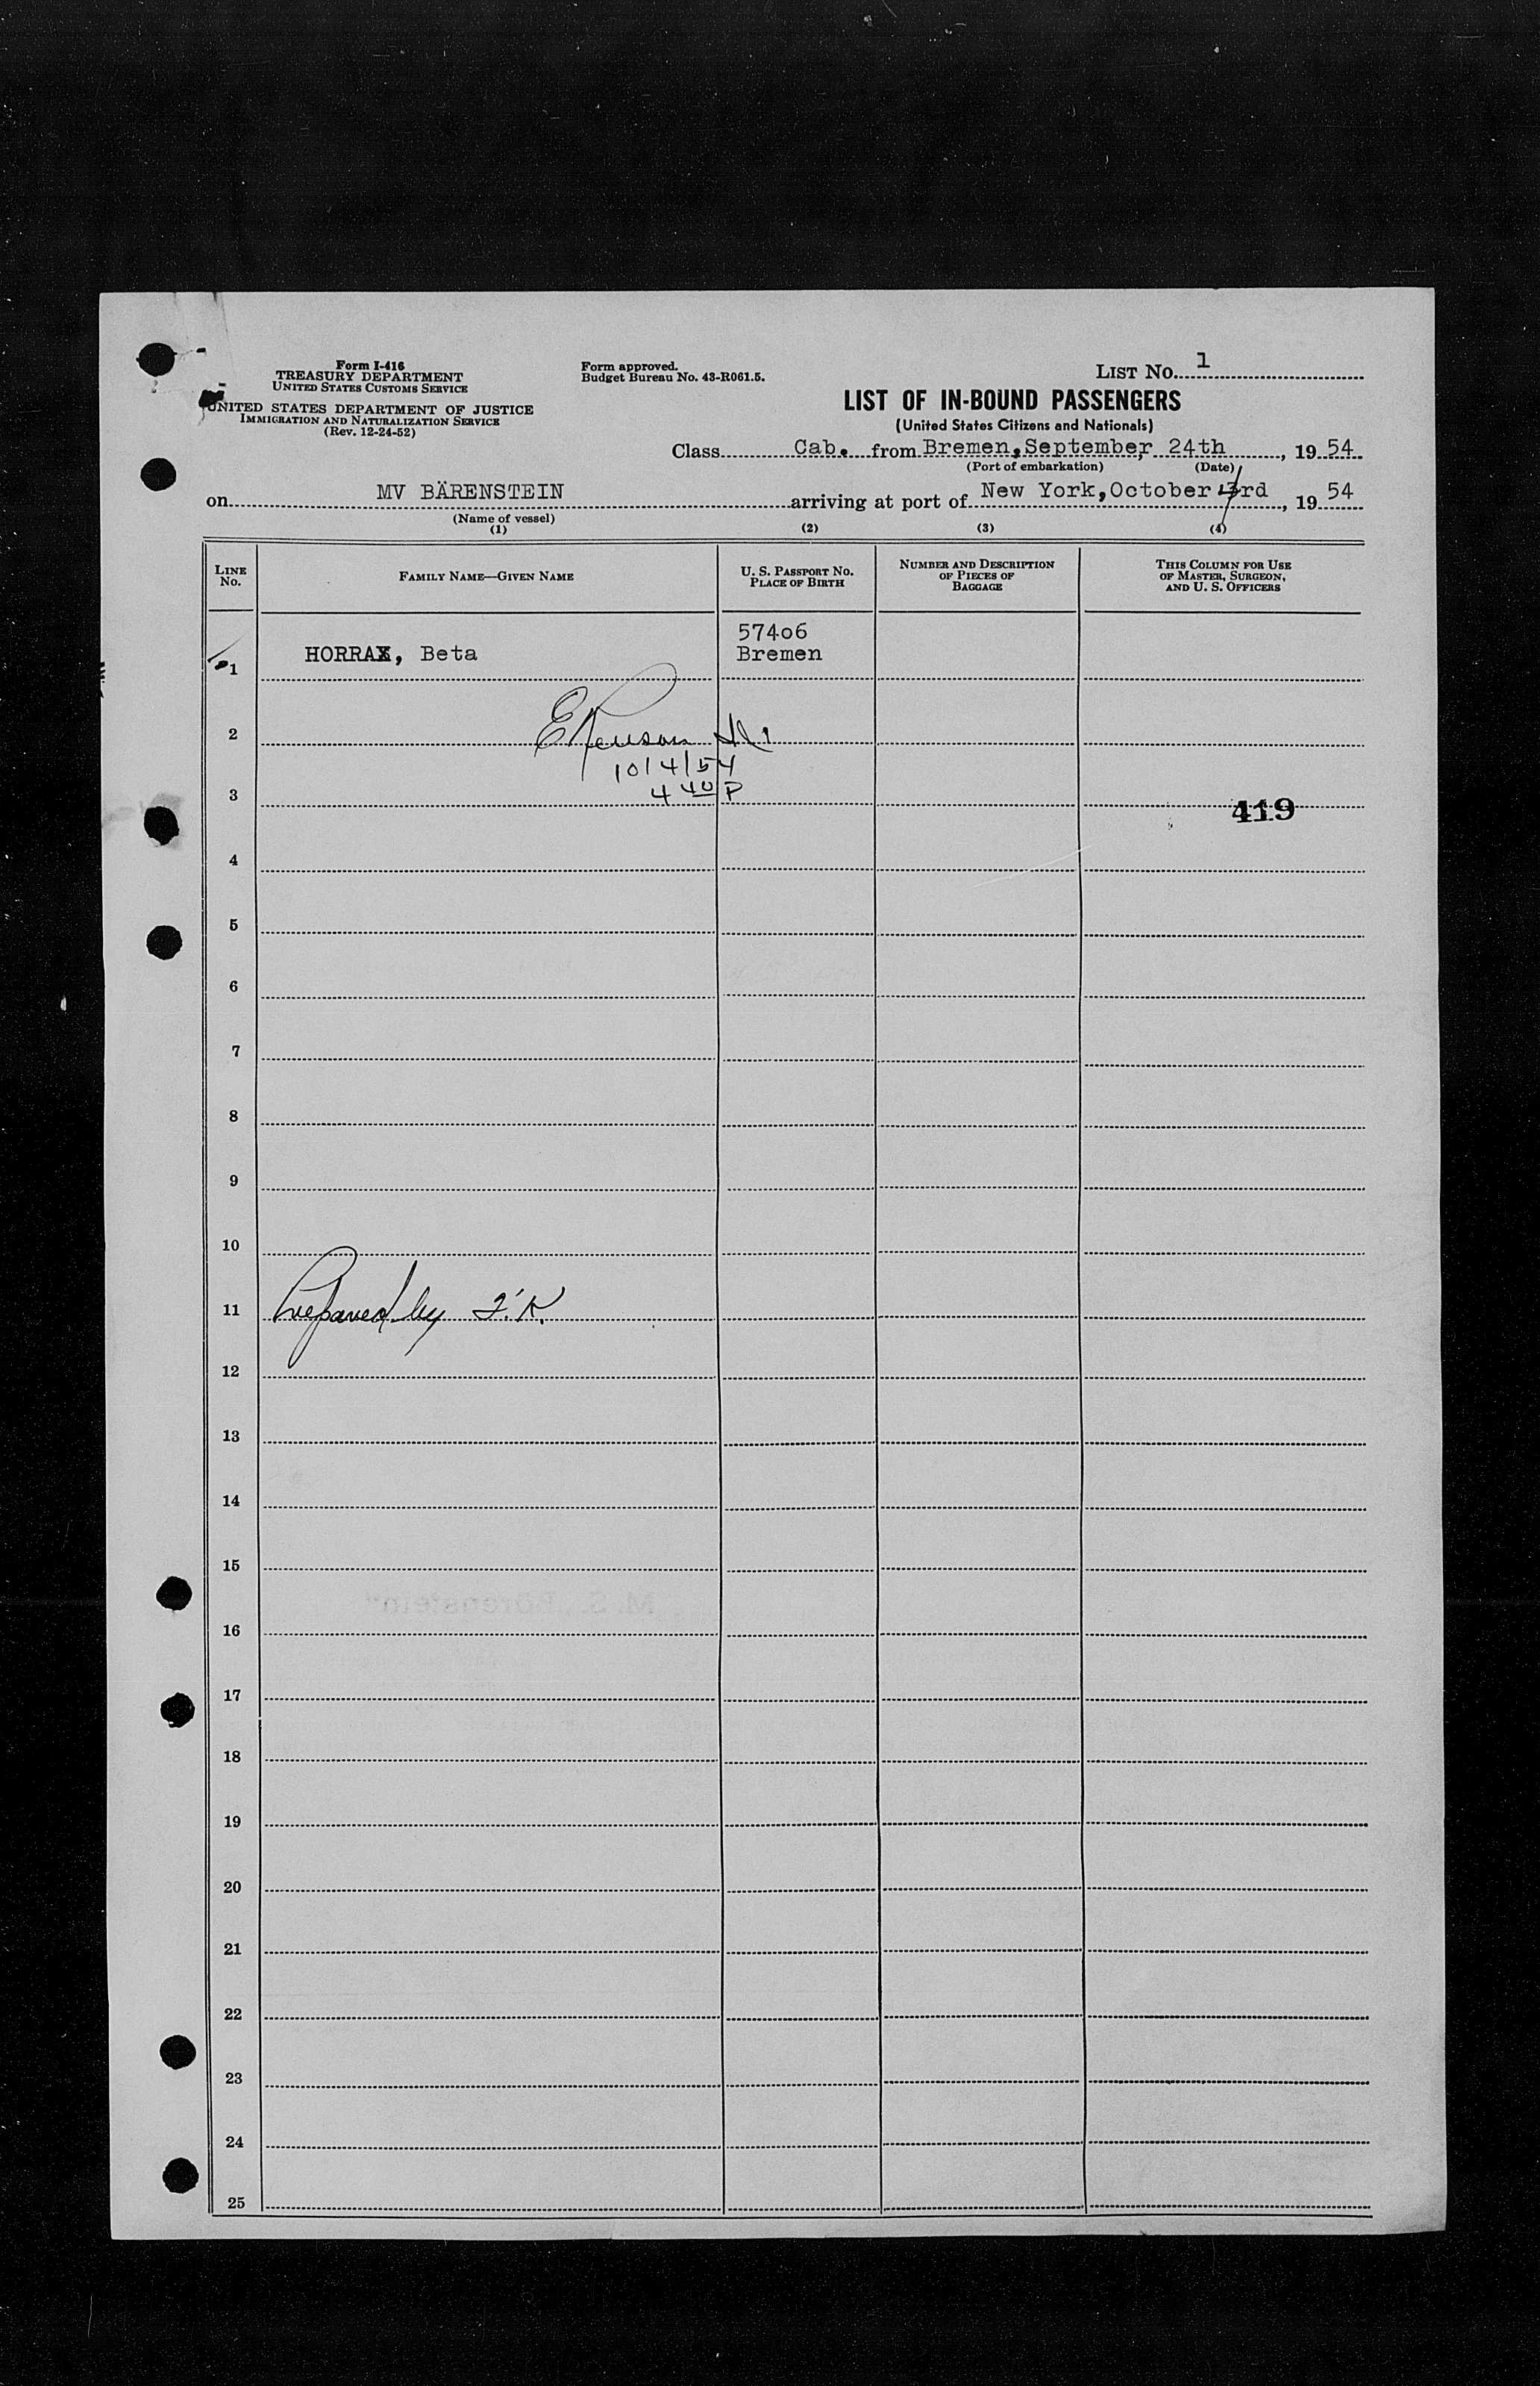 Form I-416
TREASURY DEPARTMENT
UNITED STATES CUSTOMS SERVICE
UNITED STATES DEPARTMENT OF JUSTICE
IMMIGRATION AND NATURALIZATION SERVICE
(Rev. 12-24-52)
Form approved.
Budget Bureau No. 43-R061.5.
LIST No. 1
LIST OF IN-BOUND PASSENGERS
(United States Citizens and Nationals)
Class Cab. from Bremen, September 24th, 1954
(Port of embarkation) (Date)
on MV BÄRENSTEIN arriving at port of New York, October 3rd, 1954
(Name of vessel)
(1) (2) (3) (4)
LINE No.
FAMILY NAME—GIVEN NAME
U. S. PASSPORT NO.
PLACE OF BIRTH
NUMBER AND DESCRIPTION
OF PIECES OF
BAGGAGE
THIS COLUMN FOR USE
OF MASTER, SURGEON,
AND U. S. OFFICERS
57406
1 HORRAX, Beta Bremen
2
10/4/54
3 4 40 P
419
4
5
6
7
8
9
10
11 Prepared by I.K.
12
13
14
15
M. S. „Bärenstein"
16
17
18
19
20
21
22
23
24
25